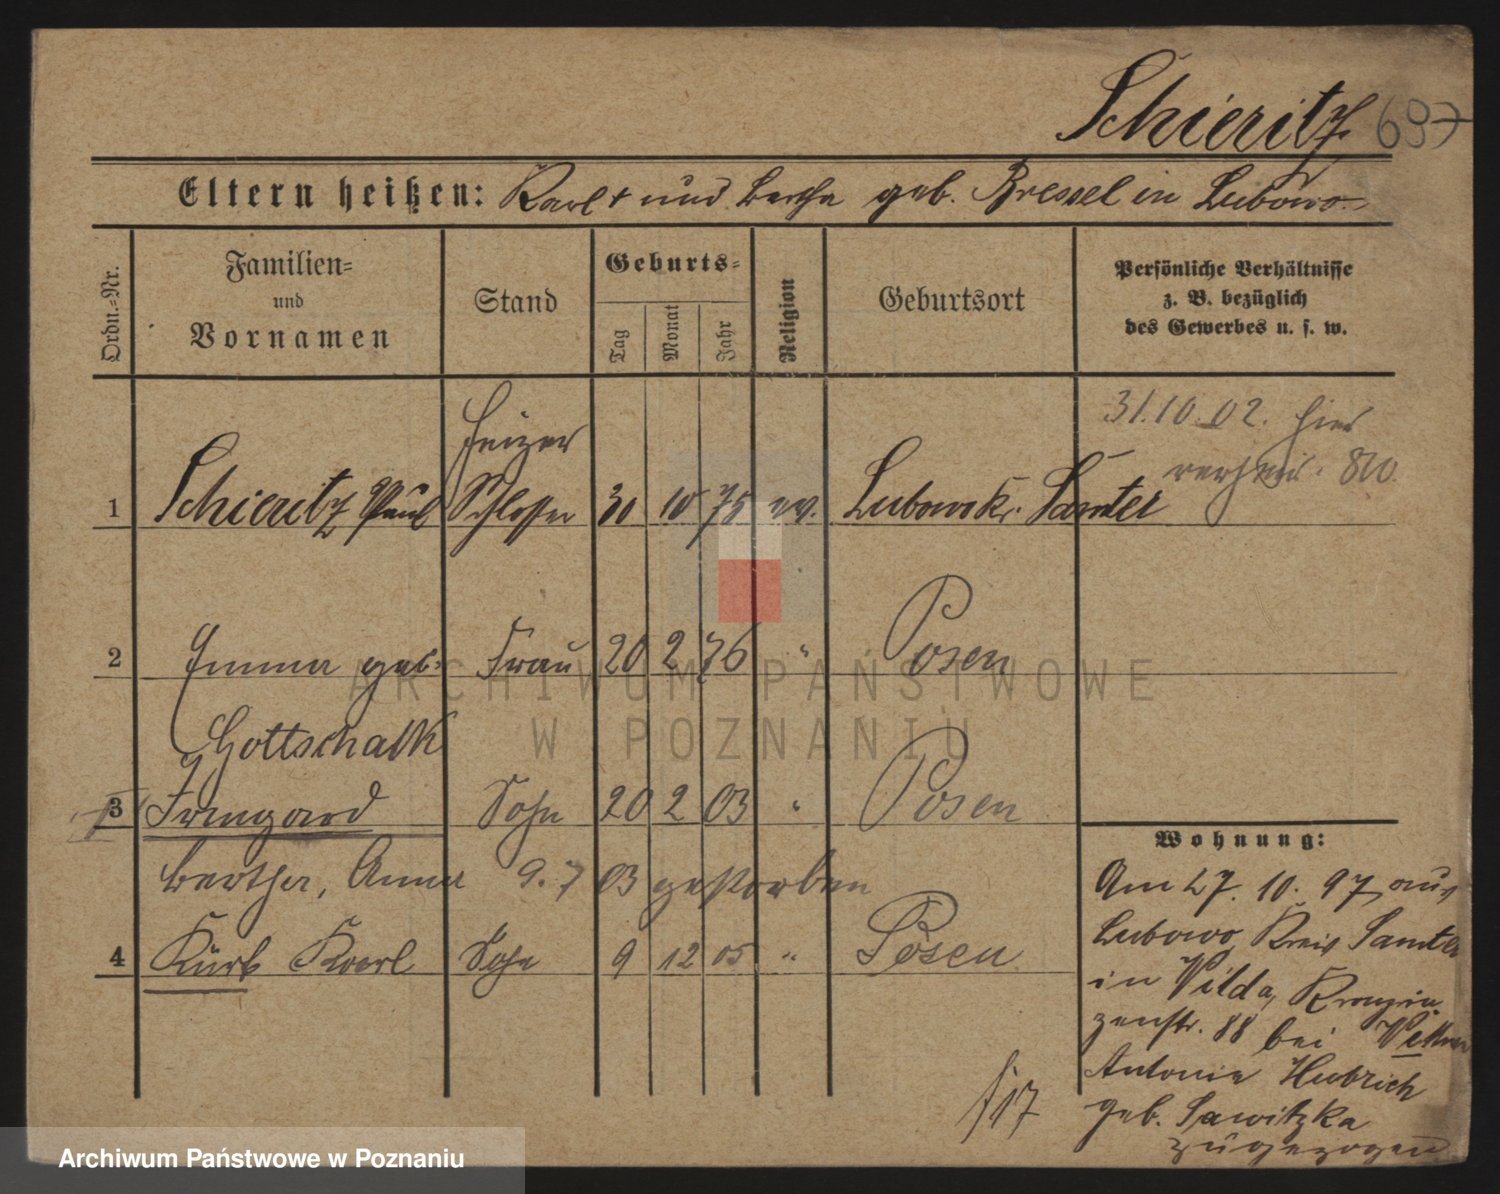 Schieritz 697
Eltern heißen: Karl † und Bertha geb. Bressel in Lubowo.
Ordn.=Nr.
Familien=
und
Vornamen
Stand
Geburts=
Tag
Monat
Jahr
Religion
Geburtsort
Persönliche Verhältnisse
z. B. bezüglich
des Gewerbes u. s. w.
31.10.02. hier
verheir. 810.
Heizer
1 Schieritz Paul Schlosser 30 10 75 ev. Lubowo Kr. Samter
2 Emma geb. Frau 20 2 76 " Posen
Gottschalk
3 Irmgard Sohn 20 2 03 " Posen
Bertha, Anna 9. 7 03 gestorben
4 Kurt Karl Sohn 9 12 05 " Posen
Wohnung:
Am 27. 10. 97 aus
Lubowo Kreis Samter
in Wilda, Kronprin
zenstr. 88 bei
Antonie Hubrich
geb. Sawitzka
zugezogen
f 17
ARCHIWUM PAŃSTWOWE
W POZNANIU
Archiwum Państwowe w Poznaniu